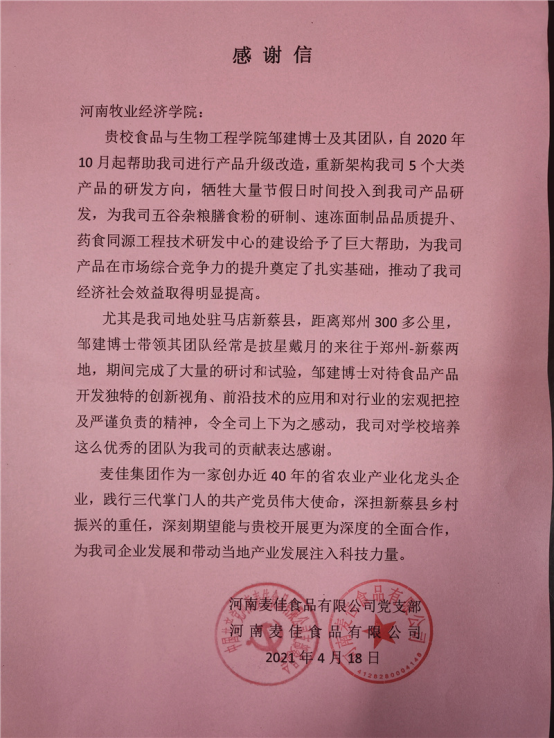 感谢信
河南牧业经济学院：
贵校食品与生物工程学院邹建博士及其团队，自 2020 年
10 月起帮助我司进行产品升级改造，重新架构我司 5 个大类
产品的研发方向，牺牲大量节假日时间投入到我司产品研
发，为我司五谷杂粮膳食粉的研制、速冻面制品品质提升、
药食同源工程技术研发中心的建设给予了巨大帮助，为我司
产品在市场综合竞争力的提升奠定了扎实基础，推动了我司
经济社会效益取得明显提高。
尤其是我司地处驻马店新蔡县，距离郑州 300 多公里，
邹建博士带领其团队经常是披星戴月的来往于郑州-新蔡两
地，期间完成了大量的研讨和试验，邹建博士对待食品产品
开发独特的创新视角、前沿技术的应用和对行业的宏观把控
及严谨负责的精神，令全司上下为之感动，我司对学校培养
这么优秀的团队为我司的贡献表达感谢。
麦佳集团作为一家创办近 40 年的省农业产业化龙头企
业，践行三代掌门人的共产党员伟大使命，深担新蔡县乡村
振兴的重任，深刻期望能与贵校开展更为深度的全面合作，
为我司企业发展和带动当地产业发展注入科技力量。
河南麦佳食品有限公司党支部
河南麦佳食品有限公司
2021 年 4 月 18 日
河南麦佳食品有限公司